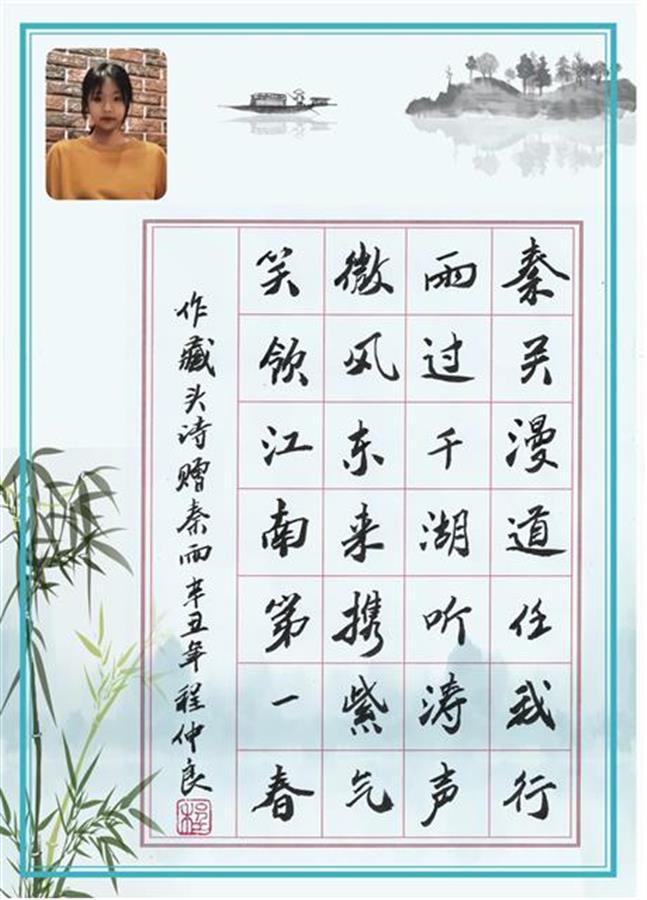 秦关漫道任我行
雨过千湖听涛声
微风东来携紫气
笑饮江南第一春
作藏头诗赠秦雨辛丑年程仲良
程